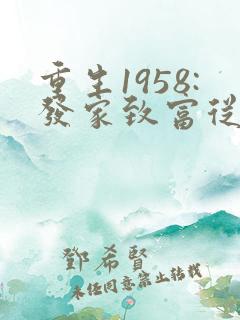 重生1958:
發家致富從
鄧希賢
未經同意禁止轉載